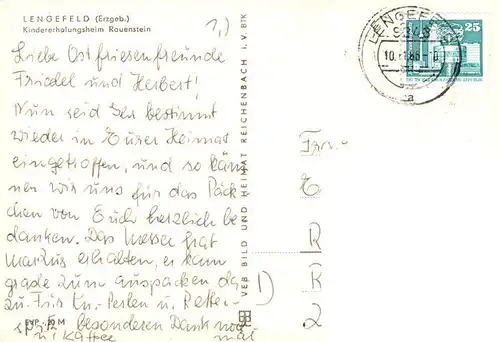 LENGEFELD (Erzgeb.)
Kindererholungsheim Rauenstein
1.)
Liebe Ostfriesenfreunde
Friedel und Herbert!
Nun seid Ihr bestimmt
wieder in Eurer Heimat
eingetroffen, und so kön
nen wir uns für das Päck
chen von Euch herzlich be
danken. Das Messer hat
Markus erhalten, er kam
grade zum auspacken da
zu. Für Perlen u. Retter-
spitz besonderen Dank noch
mals
u. Kaffee
EVP -,20 M
VEB BILD UND HEIMAT REICHENBACH I. V. BTK
LENGEFELD
25
D
R
K
2